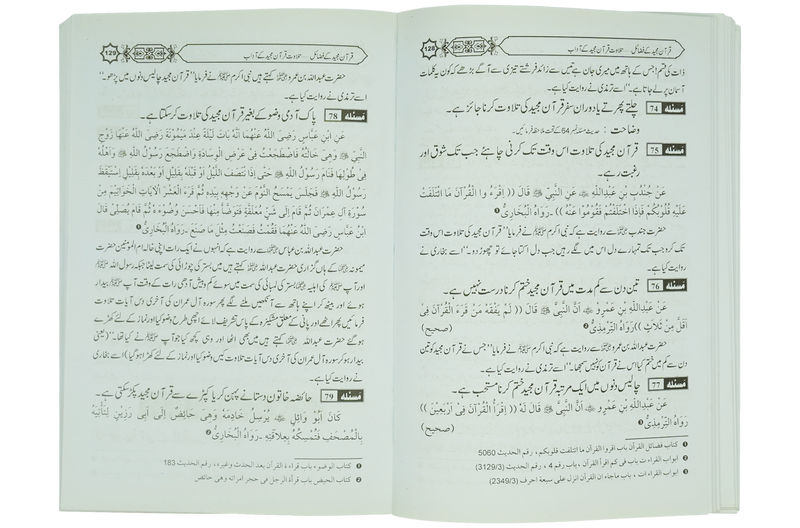 128
قرآن مجید کے فضائل....تلاوت قرآن مجید کے آداب
ذات کی قسم! جس کے ہاتھ میں میری جان ہے تیس سے زائد فرشتے تیزی سے آگے بڑھے کہ کون یہ کلمات
آسمان پر لے جاتا ہے۔" اسے ترمذی نے روایت کیا ہے۔
مسئلہ 74 چلتے پھرتے یا دوران سفر قرآن مجید کی تلاوت کرنا جائز ہے۔
وضاحت : حدیث مسئلہ نمبر 64 کے تحت ملاحظہ فرمائیں۔
مسئلہ 75 قرآن مجید کی تلاوت اس وقت تک کرنی چاہئے جب تک شوق اور
رغبت رہے۔
عَنْ جُنْدُبِ بْنِ عَبْدِاللّٰهِ ﷺ عَنِ النَّبِيِّ ﷺ قَالَ (( اِقْرَءُ وا الْقُرْآنَ مَا ائْتَلَفَتْ
عَلَيْهِ قُلُوْبُكُمْ فَإِذَا اخْتَلَفْتُمْ فَقُوْمُوْا عَنْهُ )) ۔رَوَاهُ الْبُخَارِيُّ ❶
حضرت جندب سے روایت ہے کہ نبی اکرم ﷺ نے فرمایا "قرآن مجید کی تلاوت اس وقت
تک کرو جب تک تمہارے دل اس میں لگے رہیں جب دل اکتا جائے تو چھوڑ دو۔" اسے بخاری نے
روایت کیا ہے۔
مسئلہ 76 تین دن سے کم مدت میں قرآن مجید ختم کرنا درست نہیں ہے۔
عَنْ عَبْدِاللّٰهِ بْنِ عَمْرٍو أَنَّ النَّبِيَّ ﷺ قَالَ (( لَمْ يَفْقَهْ مَنْ قَرَءَ الْقُرْآنَ فِيْ
أَقَلَّ مِنْ ثَلاَثٍ )) رَوَاهُ التِّرْمِذِيُّ ❷ (صحيح)
حضرت عبداللہ بن عمرو سے روایت ہے کہ نبی اکرم ﷺ نے فرمایا "جس نے قرآن مجید کو تین
دن سے کم میں ختم کیا اس نے قرآن کو نہیں سمجھا۔" اسے ترمذی نے روایت کیا ہے۔
مسئلہ 77 چالیس دنوں میں ایک مرتبہ قرآن مجید ختم کرنا مستحب ہے۔
عَنْ عَبْدِاللّٰهِ بْنِ عَمْرٍو أَنَّ النَّبِيَّ ﷺ قَالَ لَهُ (( اِقْرَأِ الْقُرْآنَ فِيْ أَرْبَعِيْنَ ))
رَوَاهُ التِّرْمِذِيُّ ❸ (صحيح)
❶ كتاب فضائل القرآن باب اقروا القرآن ما ائتلفت قلوبكم ، رقم الحديث 5060
❷ ابواب القراءات باب في كم اقرأ القرآن ، باب رقم 4 ، رقم الحديث (3129/3)
❸ ابواب القراءات ، باب ماجاء ان القرآن انزل على سبعة احرف (2349/3)
129
قرآن مجید کے فضائل....تلاوت قرآن مجید کے آداب
حضرت عبداللہ بن عمرو کہتے ہیں نبی اکرم ﷺ نے فرمایا "قرآن مجید چالیس دنوں میں پڑھو۔"
اسے ترمذی نے روایت کیا ہے۔
مسئلہ 78 پاک آدمی وضو کے بغیر قرآن مجید کی تلاوت کر سکتا ہے۔
عَنِ ابْنِ عَبَّاسٍ رَضِيَ اللّٰهُ عَنْهُمَا أَنَّهُ بَاتَ لَيْلَةً عِنْدَ مَيْمُوْنَةَ رَضِيَ اللّٰهُ عَنْهَا زَوْجِ
النَّبِيِّ ﷺ وَهِيَ خَالَتُهُ فَاضْطَجَعْتُ فِيْ عَرْضِ الْوِسَادَةِ وَاضْطَجَعَ رَسُوْلُ اللّٰهِ ﷺ وَأَهْلُهُ
فِيْ طُوْلِهَا فَنَامَ رَسُوْلُ اللّٰهِ ﷺ حَتّٰى إِذَا انْتَصَفَ اللَّيْلُ أَوْ قَبْلَهُ بِقَلِيْلٍ أَوْ بَعْدَهُ بِقَلِيْلٍ اسْتَيْقَظَ
رَسُوْلُ اللّٰهِ ﷺ فَجَلَسَ يَمْسَحُ النَّوْمَ عَنْ وَجْهِهِ بِيَدِهِ ثُمَّ قَرَءَ الْعَشْرَ الْآيَاتِ الْخَوَاتِيْمَ مِنْ
سُوْرَةِ آلِ عِمْرَانَ ثُمَّ قَامَ إِلٰى شَنٍّ مُعَلَّقَةٍ فَتَوَضَّأَ مِنْهَا فَأَحْسَنَ وُضُوْءَهُ ثُمَّ قَامَ يُصَلِّيْ قَالَ
ابْنُ عَبَّاسٍ رَضِيَ اللّٰهُ عَنْهُمَا فَقُمْتُ فَصَنَعْتُ مِثْلَ مَا صَنَعَ ۔رَوَاهُ الْبُخَارِيُّ ❶
حضرت عبداللہ بن عباس سے روایت ہے کہ انہوں نے ایک رات اپنی خالہ ام المؤمنین حضرت
میمونہ کے ہاں گزاری حضرت عبداللہ کہتے ہیں میں بستر کی چوڑائی کی سمت لیٹا جبکہ رسول اللہ ﷺ
اور آپ ﷺ کی اہلیہ بستر کی لمبائی کی سمت میں سوئے کم و بیش آدھی رات کے وقت آپ ﷺ بیدار
ہوئے اور بیٹھ کر اپنے ہاتھ سے آنکھیں ملنے لگے پھر سورہ آل عمران کی آخری دس آیات تلاوت
فرمائیں پھر اٹھے اور پانی کے معلق مشکیزہ کے پاس تشریف لائے اچھی طرح وضو کیا اور نماز کے لئے کھڑے
ہو گئے حضرت عبداللہ کہتے ہیں میں بھی اٹھا اور وہی کچھ کیا جو آپ ﷺ نے کیا تھا۔" (یعنی
بیدار ہو کر سورہ آل عمران کی آخری دس آیات تلاوت کیں وضو کیا اور نماز کے لئے کھڑا ہو گیا) اسے بخاری
نے روایت کیا ہے۔
مسئلہ 79 حائضہ خاتون دستانے پہن کر یا کپڑے سے قرآن مجید پکڑ سکتی ہے۔
كَانَ أَبُوْ وَائِلٍ يُرْسِلُ خَادِمَهُ وَهِيَ حَائِضٌ إِلٰى أَبِيْ رَزِيْنٍ لِتَأْتِيَهُ
بِالْمُصْحَفِ فَتُمْسِكُهُ بِعِلاَقَتِهِ ۔رَوَاهُ الْبُخَارِيُّ ❷
❶ كتاب الوضوء باب قراءة القرآن بعد الحدث وغيره ، رقم الحديث 183
❷ كتاب الحيض باب قرأة الرجل في حجر امراته وهي حائض